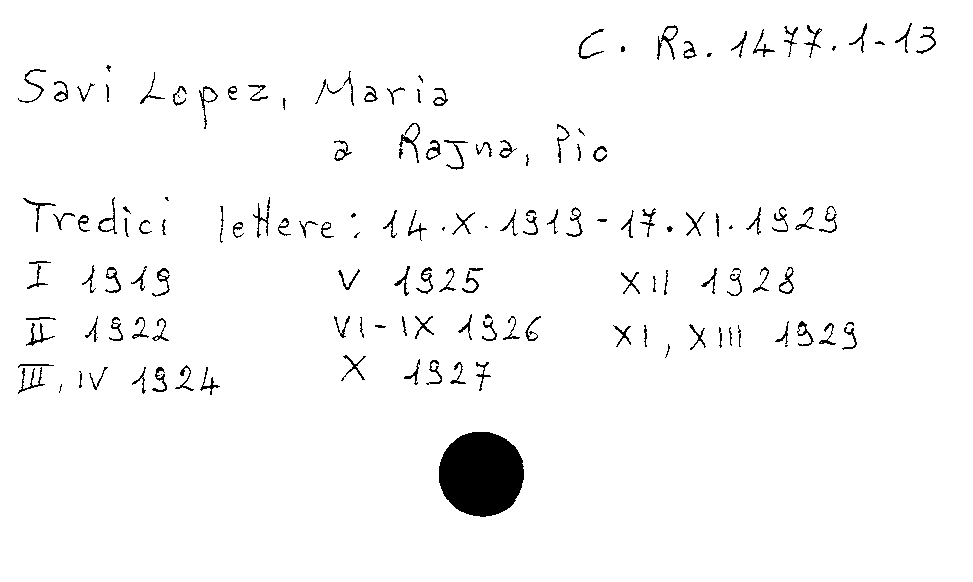 C. Ra. 1477.1-13
Savi Lopez, Maria
a Rajna, Pio
Tredici lettere: 14.X.1919-17.XI.1929
I 1919 V 1925 XII 1928
II 1922 VI-IX 1926 XI, XIII 1929
III, IV 1924 X 1927